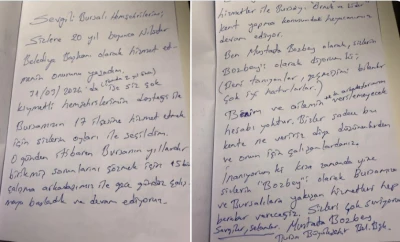 Sevgili Bursalı Hemşehrilerim,
Sizlere 20 yıl boyunca Nilüfer
Belediye Başkanı olarak hizmet et-
menin onurunu yaşadım.
31/03/2024'de ise siz çok
kıymetli hemşehrilerimin desteğiyle
Bursamızın 17 ilçesine hizmet etmek
için sizlerin oyları ile seçildim.
O günden itibaren Bursanın yıllardır
birikmiş sorunlarını çözmek için
çalışma arkadaşlarım ile gece gündüz çalış-
maya başladık ve devam ediyorum.
hizmetler ile Bursayı
kent yapma konusundaki heyecanımız
devam ediyor.
Ben Mustafa Bozbey olarak, sizlerin
Bozbey'i olarak diyorum ki:
(Beni tanıyanlar, geçmişimi bilenler
çok iyi hatırlarlar.)
Benim ve ailemin ve arkadaşlarımın verilemeyecek
hesabı yoktur. Bizler sadece bu
kente ne veririz diye düşünenlerden
ve onun için çalışanlardanız.
İnanıyorum ki kısa zamanda yine
sizlerin "Bozbey"i olarak Bursamıza
ve Bursalılara yakışan hizmetleri hep
beraber vereceğiz. Sizleri çok seviyorum
Sevgiler, selamlar. Mustafa Bozbey
Bursa Büyükşehir Bel. Bşk.